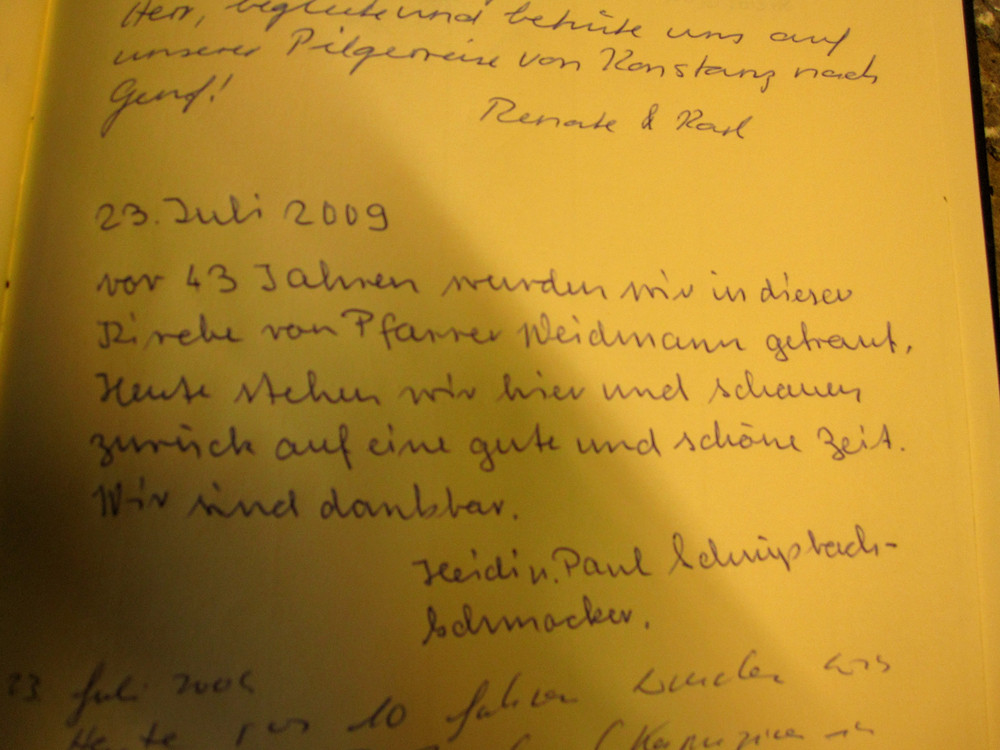 Herr, begleite und behüte uns auf
unserer Pilgerreise von Konstanz nach
Genf!
Renate & Karl
23. Juli 2009
vor 43 Jahren wurden wir in dieser
Kirche von Pfarrer Weidmann getraut.
Heute stehen wir hier und schauen
zurück auf eine gute und schöne Zeit.
Wir sind dankbar.
Heidi u. Paul
Schmocker.
23 Juli
Heute vor 10 Jahren wurden wir